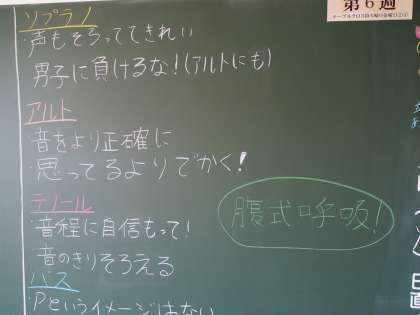 第6週
ソプラノ
・声もそろっててきれい
男子に負けるな!(アルトにも)
アルト
・音をより正確に
・思ってるよりでかく!
テノール
・音程に自信もって!
・音のきりそろえる
腹式呼吸!
バス
・Pというイメージはない